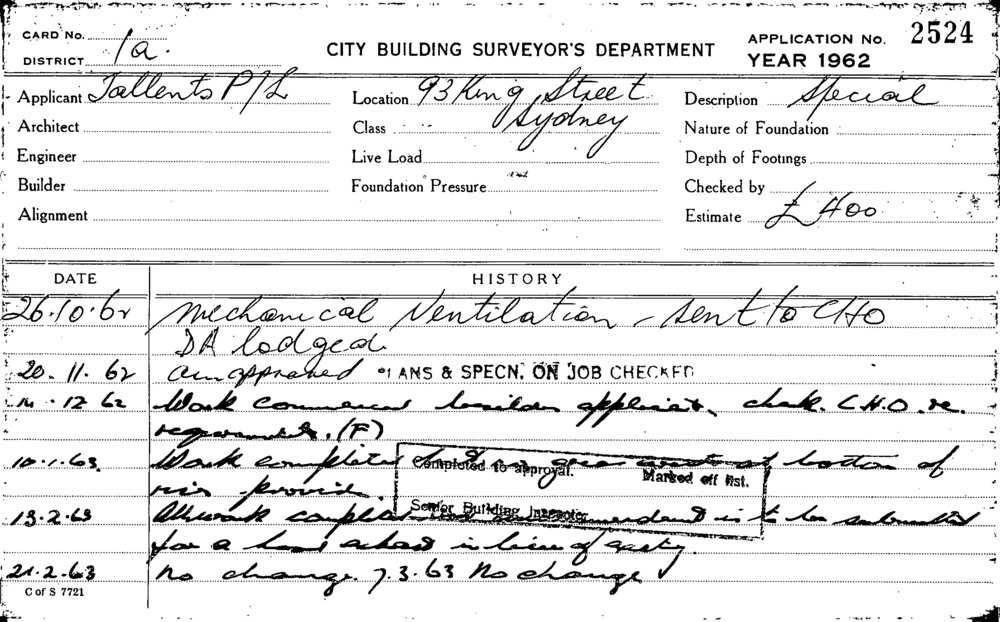 CARD No.
DISTRICT 1a.
CITY BUILDING SURVEYOR'S DEPARTMENT
APPLICATION No. 2524
YEAR 1962
Applicant Tallents P/L
Location 93 King Street
Sydney
Description Special
Architect
Class
Nature of Foundation
Engineer
Live Load
Depth of Footings
Builder
Foundation Pressure
Checked by
Alignment
Estimate £ 400
DATE HISTORY
26.10.62 Mechanical Ventilation - sent to CHO
DA lodged
20.11.62 approved ANS & SPECN. ON JOB CHECKED
14.12.62 Work commenced builder applicant. check. C.H.O. re.
requirements. (F)
10.1.63. Work completed at bottom of
Completed to approval. Marked off list.
provided.
Senior Building Inspector
13.2.63 All work completed amendment is to be submitted
for a in lieu of
21.2.63 No change. 7.3.63 No change
C of S 7721